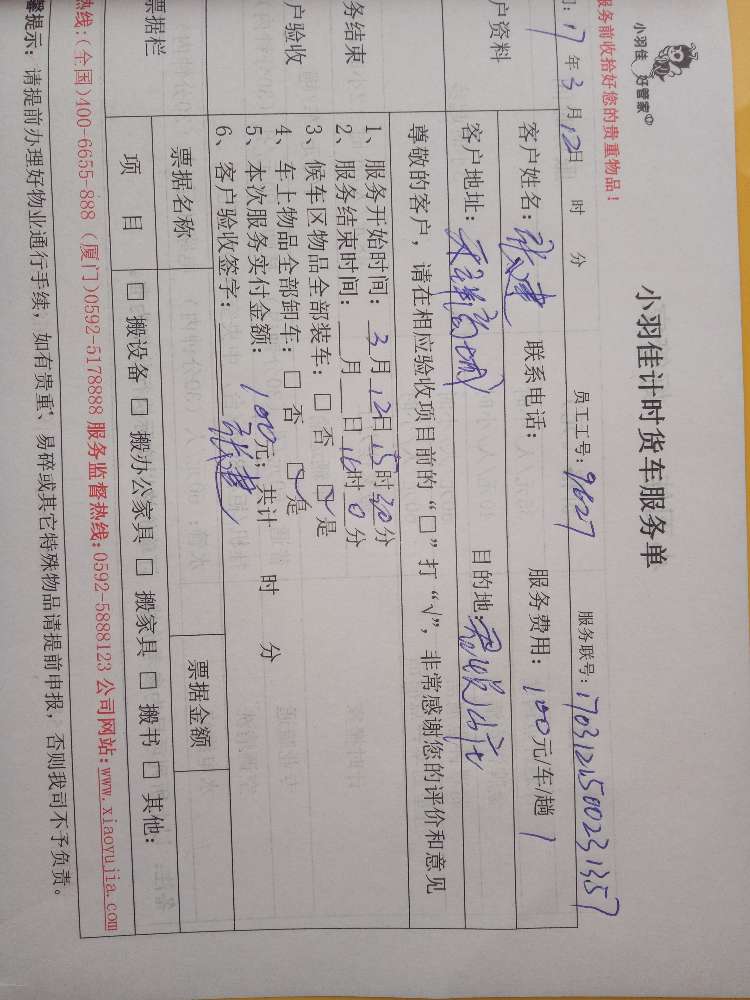 小羽佳 好管家
服务前收拾好您的贵重物品！
小羽佳计时货车服务单
17年3月12日 时 分 员工工号：9627 服务联号：1703121500231357
户资料 客户姓名：张建 联系电话： 服务费用：100元/车/趟 1
客户地址： 目的地：
尊敬的客户，请在相应验收项目前的“□”打“√”，非常感谢您的评价和意见
务结束
户验收
1、服务开始时间：3月12日15时30分
2、服务结束时间： 月 日16时0分
3、候车区物品全部装车：□ 否 ☑ 是
4、车上物品全部卸车：□ 否 ☑ 是
5、本次服务实付金额：100元；共计 时 分
6、客户验收签字：张建
票据栏 票据名称 票据金额
项 目 □ 搬设备 □ 搬办公家具 □ 搬家具 □ 搬书 □ 其他：
热线：(全国)400-6655-888 (厦门)0592-5178888 服务监督热线：0592-5888123 公司网站：www.xiaoyujia.com
馨提示：请提前办理好物业通行手续，如有贵重、易碎或其它特殊物品请提前申报，否则我司不予负责。